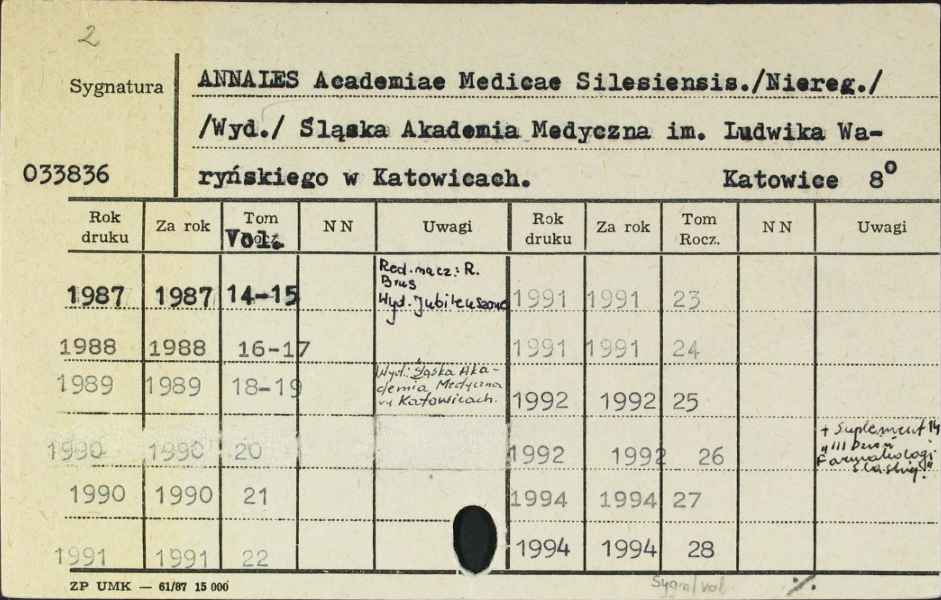 2
Sygnatura
ANNALES Academiae Medicae Silesiensis./Niereg./
/Wyd./ Śląska Akademia Medyczna im. Ludwika Wa-
033836
ryńskiego w Katowicach. Katowice 8⁰
Rok druku Za rok Tom Vol. NN Uwagi Rok druku Za rok Tom Rocz. NN Uwagi
1987 1987 14-15 Red. nacz.: R. Brus Wyd. Jubileuszowe 1991 1991 23
1988 1988 16-17 1991 1991 24
1989 1989 18-19 Wyd.: Śląska Aka-
demia Medyczna
w Katowicach. 1992 1992 25
1990 1990 20 1992 1992 26 + Suplement 14
"III Dzień
Farmakologii
Śląskiej."
1990 1990 21 1994 1994 27
1991 1991 22 1994 1994 28
ZP UMK — 61/87 15 000 Sygn/vol ./.